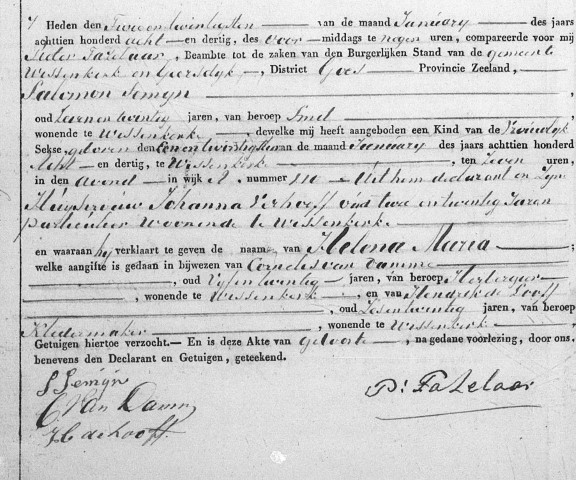 7 Heden den Tweeentwintigsten van de maand Januarij des jaars
achttien honderd acht en dertig, des voor middags te negen uren, compareerde voor mij
Pieter Fazelaar, Beambte tot de zaken van den Burgerlijken Stand van de gemeente
Wissenkerk en Geersdijk, District Goes Provincie Zeeland,
Salomon Semeijn
oud zevenentwintig jaren, van beroep Smid
wonende te Wissenkerke dewelke mij heeft aangeboden een Kind van de Vrouwelijk
Sekse, geboren den Eenentwintigsten van de maand Januarij des jaars achttien honderd
Acht en dertig, te Wissenkerk, ten Zeven uren,
in den avond in wijk A. nummer 210 Uit hem declarant en Zijne
Huisvrouw Johanna Verhoeff oud twee en twintig Jaren
particuliere Woonende te Wissenkerk
en waaraan hij verklaart te geven de naam van Helena Maria
welke aangifte is gedaan in bijwezen van Cornelis van Damme
, oud Vijfentwintig jaren, van beroep Herberger
, wonende te Wissenkerk, en van Hendrik de Looff
, oud Zesentwintig jaren, van beroep
Kledermaker, wonende te Wissenkerk
Getuigen hiertoe verzocht. — En is deze Akte van geboorte, na gedane voorlezing, door ons.
benevens den Declarant en Getuigen, geteekend.
S Semeijn
P: Fazelaar
C Van Damm
H de Looff